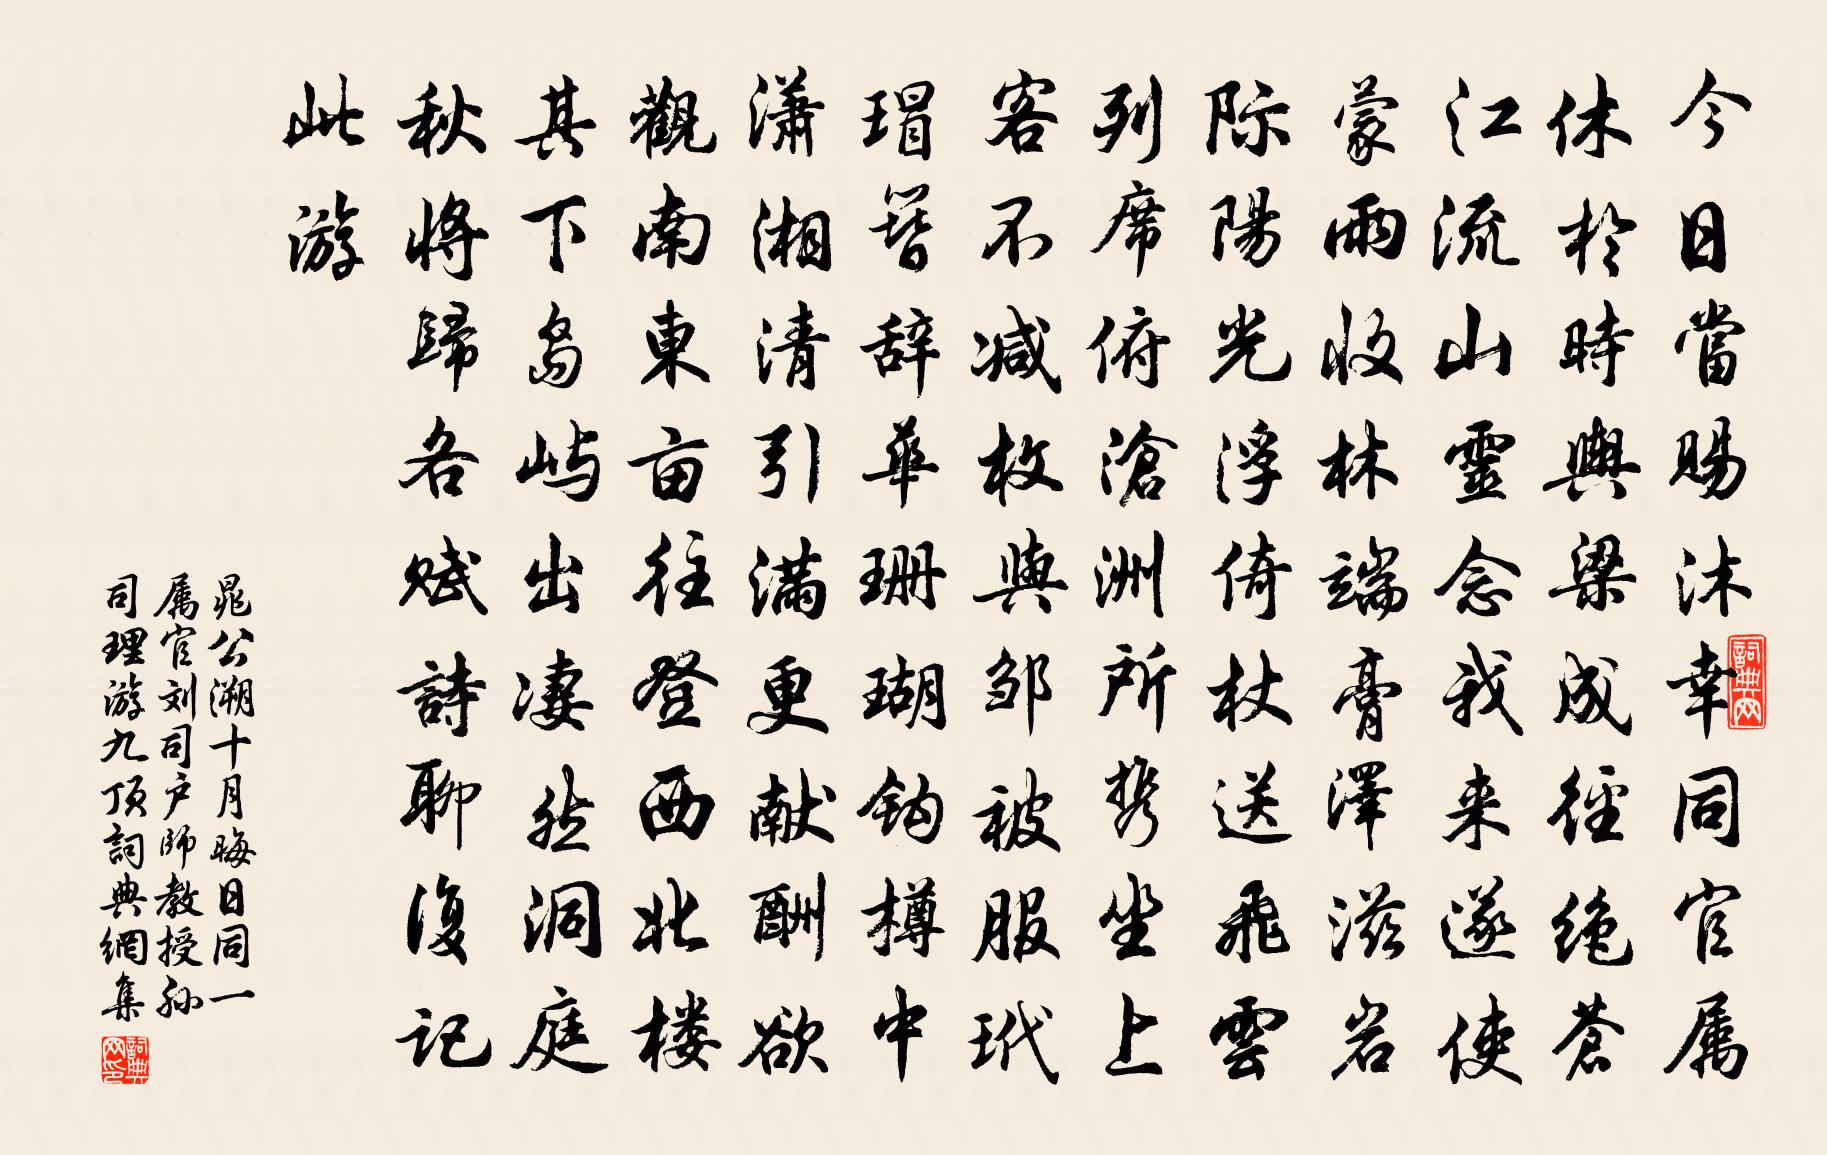 今日當賜沐幸同官属
休於時與梁成徑絶蒼
江流山靈念我来遂使
蒙雨收林端膏澤滋岩
际陽光浮倚杖送飛雲
列席俯滄洲所携坐上
客不减枚與邹被服玳
瑁簪辞華珊瑚鈎樽中
潇湘清引满更献酬欲
觀南東亩往登西北楼
其下島屿出凄然洞庭
秋将歸各赋詩聊復记
此游
晁公溯十月晦日同一
属官刘司户师教授孙
司理游九顶詞典網集
詞典网
詞典网